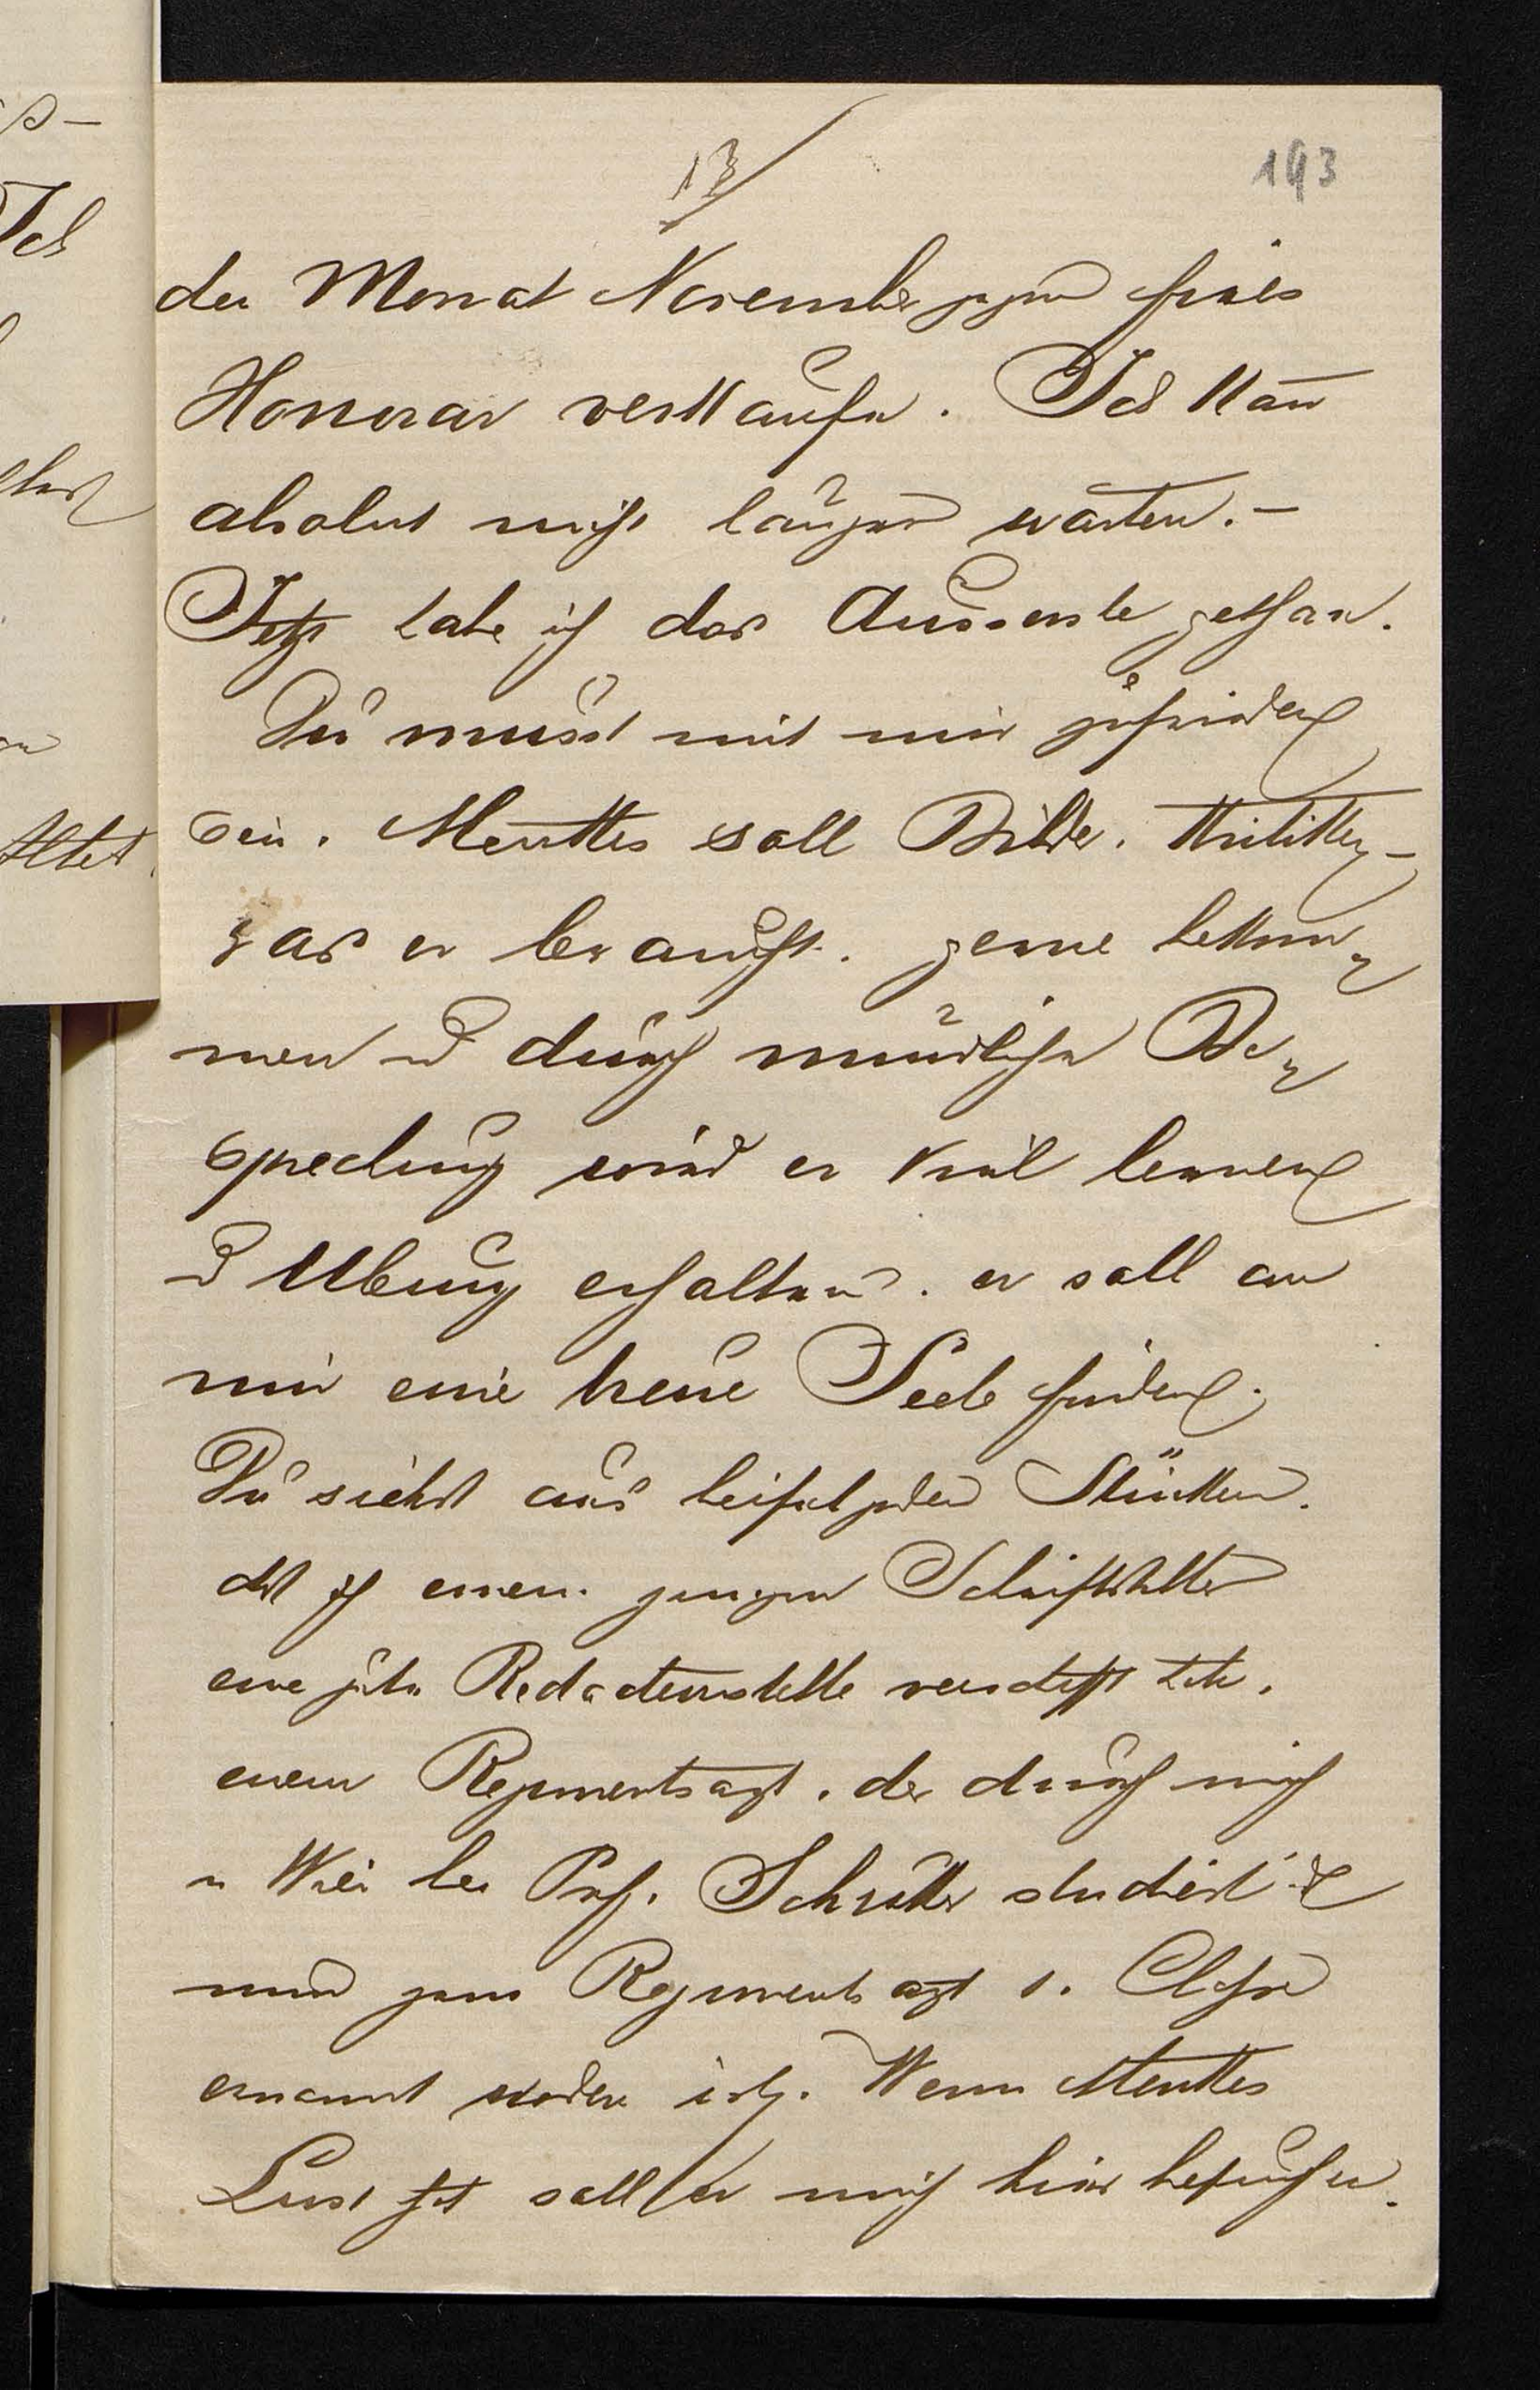 13/
193
der Monat November gegen freies
Honorar verkaufen. Ich kan̅
absolut nicht länger warten. -
Jetzt habe ich das Ausserste gethan.
Du musst mit mir zufrieden
sein. Menkes soll Bilder. Kritiken -
was er braucht. gerne bekom-
men u durch mündliche Be-
sprechung wird er viel lernen
u Ubung erhalten. er soll an
mir eine treue Seele finden.
Du siehst aus beifolgenden Stücken.
dß ich einem jungen Schriftsteller
eine gute Redacteurstelle verschafft habe.
einem Regimentsarzt. der durch mich
in Wien bei Prof. Schrötter studiert
nun zum Regimentsarzt 1. Classe
ernannt worden ist. Wenn Menkes
Lust hat soll er mich hier besuchen.